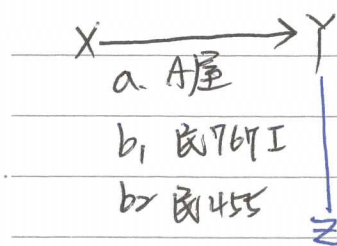 X → Y
a. A屋
b1 民767 I
b2 民455
Z